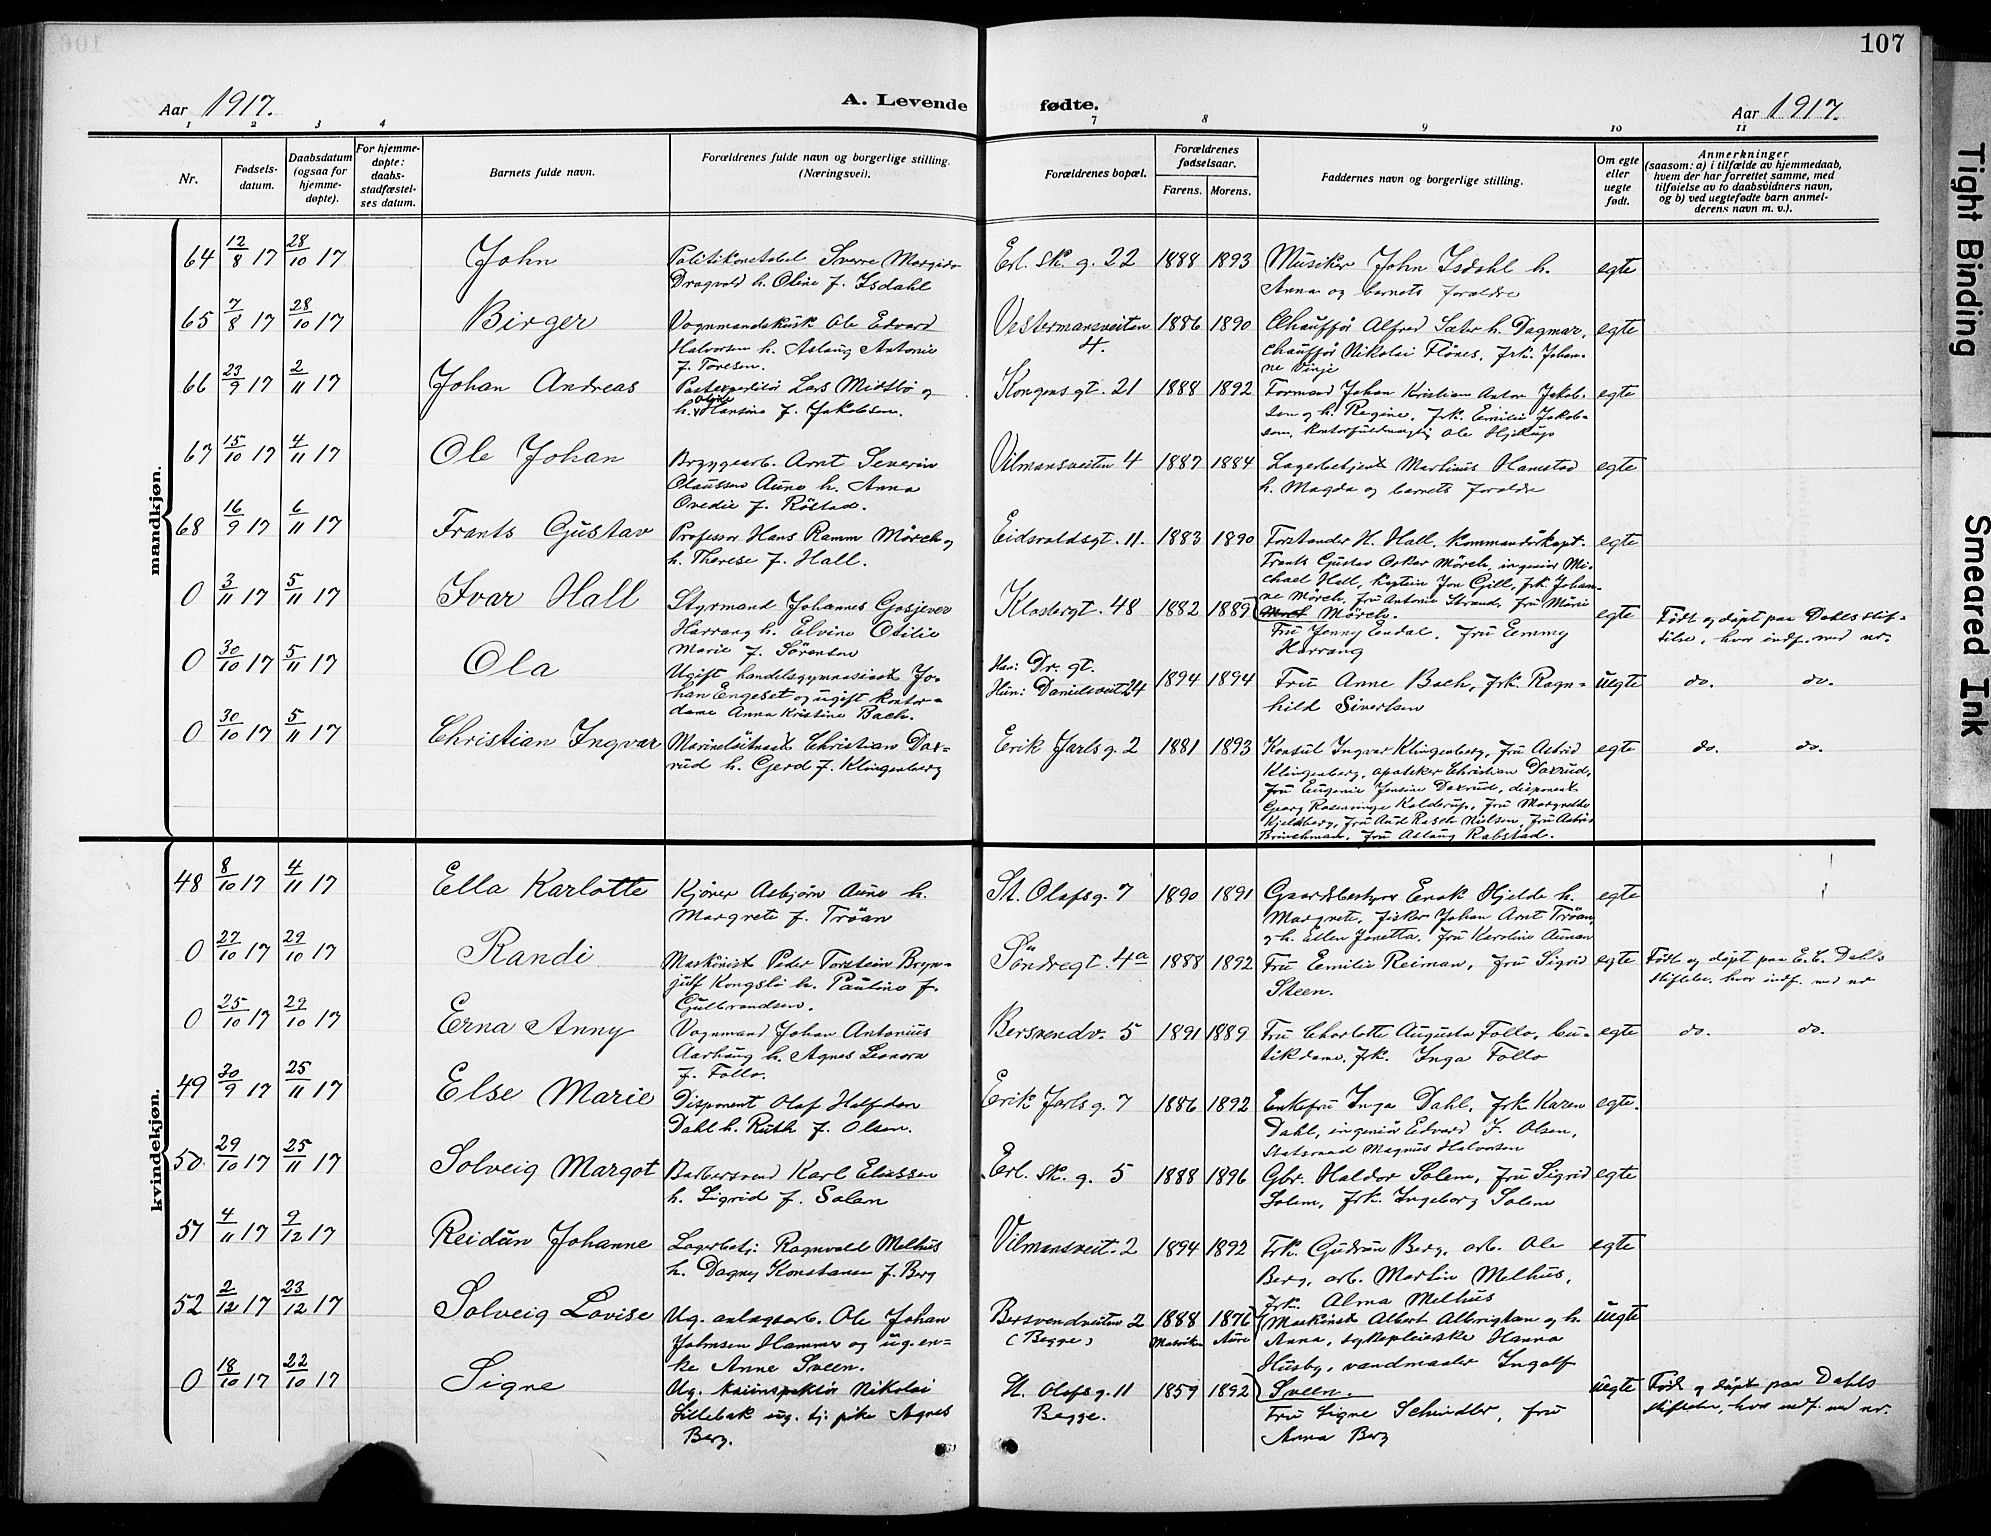 107
Aar 1917.
A. Levende
fødte.
Aar 1917.
1 2 3 4 7 8 9 10 11
Nr.
Fødsels-
datum.
Daabsdatum
(ogsaa for
hjemme-
døpte).
For hjemme-
døpte:
daabs-
stadfæstel-
ses datum.
Barnets fulde navn.
Forældrenes fulde navn og borgerlige stilling.
(Næringsvei).
Forældrenes bopæl.
Forældrenes
fødselsaar.
Farens. Morens.
Faddernes navn og borgerlige stilling.
Om egte
eller
uegte
født.
Anmerkninger
(saasom: a) i tilfælde av hjemmedaab,
hvem der har forrettet samme, med
tilføielse av to daabsvidners navn,
og b) ved uegtefødte barn anmel-
derens navn m. v.).
mandkjøn.
64 12/8 17 28/10 17 John
Politikonstabel Sverre
Dragvold h. Oline f. Isdahl
Erl. Sk. g. 22 1888 1893
Musiker John Isdahl h.
Anna og barnets forældre
egte
65 7/8 17 28/10 17 Birger
Vognmandskusk Ole Edvard
Halvorsen h. Aslaug Antonie
f. Toresen.
Vestermansveiten
4.
1886 1890
Chauffør Alfred Sæter h. Dagmar,
chauffør Nikolai Flönes, frk. Johan-
ne Vinje
egte
66 23/9 17 2/11 17 Johan Andreas
Lars Midsbö og
h. Oline Hansine f. Jakobsen.
Kongens gt. 21 1888 1892
Formand Johan Kristian Anton Jakob-
sen og h. Regine, frk. Emilie Jakob-
sen, kontorfuldmægtig Ole
egte
67 15/10 17 4/11 17 Ole Johan
Bryggearb. Arnt Severin
Olaussen Aune h. Anna
Ovedie f. Röstad.
Vilmansveiten 4 1887 1884
Lagerbetjent Martinus Hamstad
h. Magda og barnets forældre
egte
68 16/9 17 6/11 17 Frants Gustav
Professor Hans Ramm Mörch og
h. Therese f. Hall.
Eidsvoldsgt. 11. 1883 1890
Forstander H. Hall, kommandörkapt.
Frants Gustav Oskar Mörch, ingeniör Mi-
chael Hall, kaptein Jon Gill, frk. Johan-
ne Mörch, fru Antonie Strand, fru Marie
Mörch.
egte
0 3/11 17 5/11 17 Ivar Hall
Styrmand Johannes Gosjever
Harrang h. Elvine Otilie
Marie f. Sörensen
Klostergt. 48 1882 1889
Fru Jenny Endal, fru Emmy
Harrang
egte
Födt og döpt paa Dahls stif-
telse, hvor indf. med nr.
0 30/10 17 5/11 17 Ola
Ugift handelsgymnasiast Jo-
han Engeset og ugift kontor-
dame Anna Kristine Bach.
Han: Dr. gt.
Hun: Danielsveit. 24
1894 1894
Fru Anne Bach, frk. Ragn-
hild Sivertsen
uegte do. do.
0 30/10 17 5/11 17 Christian Ingvar
Marinelöitnant Christian Dax-
rud h. Gerd f. Klingenberg
Erik Jarls g. 2 1881 1893
Konsul Ingvar Klingenberg, fru Astrid
Klingenberg, apoteker Christian Daxrud,
fru Eugenie Jensine Daxrud, disponent
Georg Rosenvinge Kolderup, fru Margrethe
Kjeldsberg, fru Aud Rasch Nielsen, fru Astrid
Brinchman, fru Aslaug Rabstad.
egte do. do.
kvindekjøn.
48 8/10 17 4/11 17 Ella Karlotte
Kjörer Asbjörn Aune h.
Margrete f. Tröan
St. Olafsg. 7 1890 1891
Gaardbestyrer Enok Hjelde h.
Margrete, fisker Johan Arnt Tröan,
og h. Ellen Jonetta, fru Karoline Aunan
egte
0 27/10 17 29/10 17 Randi
Maskinist Peder Torstein Bryn-
julf Kongsli h. Pauline f.
Gulbrandsen.
Söndregt. 4a 1888 1892
Fru Emilie Reiman, fru Sigrid
Steen.
egte
Födt og döpt paa E. C. Dahls
stiftelse, hvor indf. med nr
0 25/10 17 29/10 17 Erna Anny
Vognmand Johan Antonius
Aarhaug h. Agnes Leonora
f. Follo.
Bersvendv. 5 1891 1889
Fru Charlotte Augusta Follo, bu-
tikdame, frk. Inga Follo
egte do. do.
49 30/9 17 25/11 17 Else Marie
Disponent Olaf Halfdan
Dahl h. Ruth f. Olsen.
Erik Jarls g. 7 1886 1892
Enkefru Inga Dahl, frk. Karen
Dahl, ingeniör Edvard F. Olsen,
Statsraad Magnus Halvorsen
egte.
50 29/10 17 25/11 17 Solveig Margot
Barbersvend Karl Eliassen
h. Sigrid f. Solem
Erl. Sk. g. 5 1888 1896
Gbr. Haldor Solem, fru Sigrid
Solem, frk. Ingeborg Solem
egte
51 4/11 17 9/12 17 Reidun Johanne
Lagerbetj. Ragnvald Melhus
h. Dagny Konstanse f. Berg
Vilmansveit. 2 1894 1892
Frk. Gudrun Berg, arb. Ole
Berg, arb. Martin Melhus,
frk. Alma Melhus
egte
52 2/12 17 23/12 17 Solveig Lovise
Ug. anlægsarb. Ole Johan
Johnsen Hammer og ug. en-
ke Anne Sveen.
Bersvendveiten 2
(Begge)
1888 1876
Aure
Maskinist Albert Albrigtsen og h.
Anna, sykepleierske Hanna
Husby, vandmaaler Ingolf
Sveen.
uegte
0 18/10 17 22/10 17 Signe
Ug. kaiinspektör Nikolai
Lillebak ug. tj. pike Agnes
Berg.
St. Olafsg. 11
Begge.
1859 1892
Fru Signe Schindler, fru
Anna Berg
uegte
Födt og döpt paa Dahls
stiftelse, hvor indf. med nr.
Tight Binding
Smeared Ink